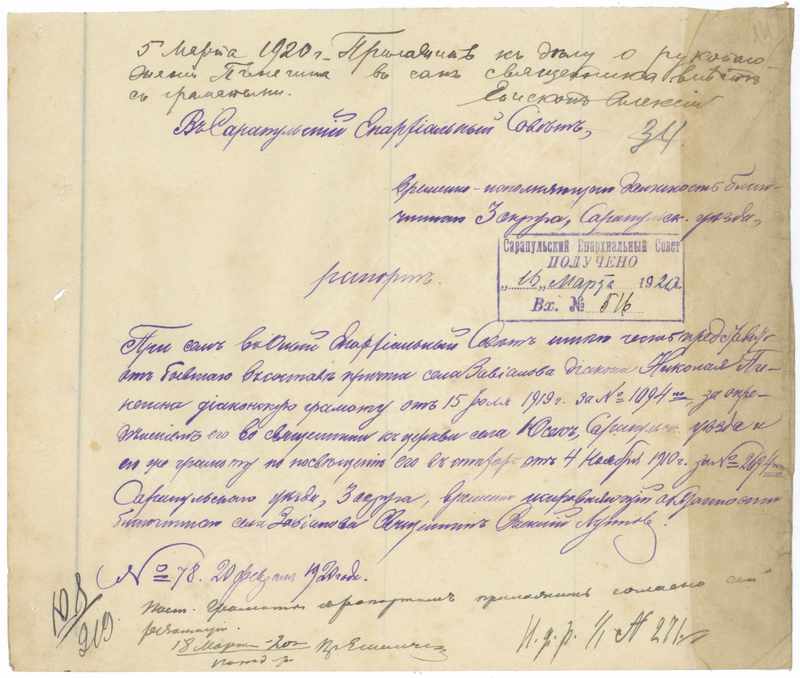 5 Марта 1920 г. Приложить къ дѣлу о рукополо-
женіи Пинегина въ санъ священника вмѣстѣ
съ грамотами. Епископъ Алексій
34
Въ Сарапульскій Епархіальный Совѣтъ,
Временно-исполняющаго должность благо-
чиннаго 3 округа, Сарапульск. уѣзда,
Сарапульский Епархиальный Совет
ПОЛУЧЕНО
„16„ Марта 1920
Вх. № 516
рапортъ.
При семъ въ Епархіальный Совѣтъ имѣю честь представить
отъ бывшаго въ составѣ причта села Завіалова діакона Николая Пи-
негина діаконскую грамоту отъ 15 Іюля 1919 г. за № 1094 за опре-
его во священника къ церкви села Юськ, Сарапульск. уѣзда и
его же грамоту по посвященію его въ стихарь отъ 4 Ноября 1910 г. за №
Сарапульскаго уѣзда, 3 округа, временно обязанности
благочиннаго села Завіалова Священникъ
№ 78. 20 февраля 1920 года.
Грамоты приложить согласно
резолюціи.
18 Марта - 20 г.
10 8/219
И. д. р. 1/1 № 271